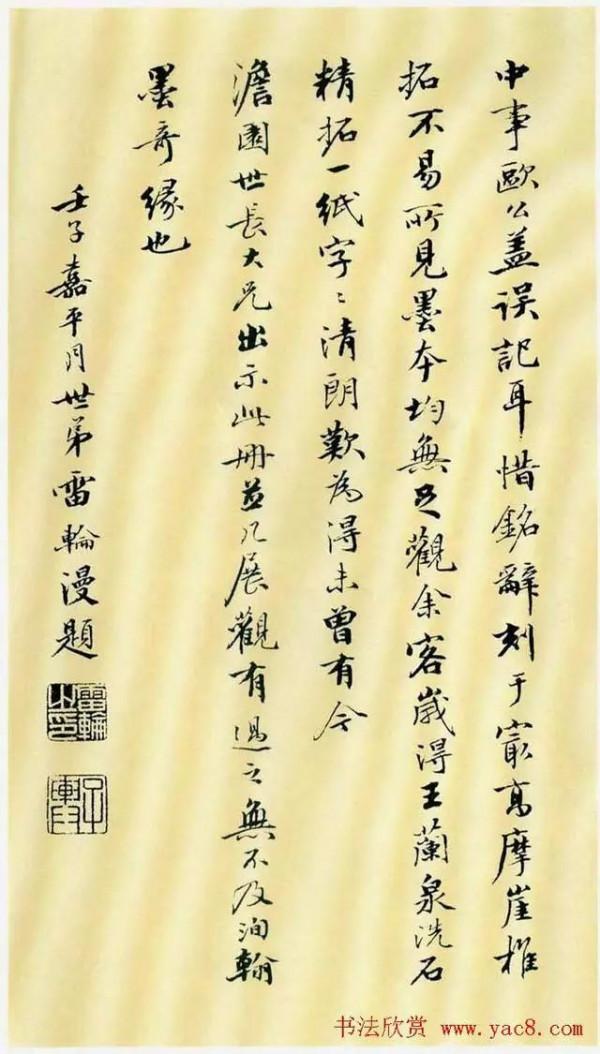 中事歐公盖误記耳惜銘辭刻于㝡高摩崖椎
拓不易所見墨本均無足觀余客歲得王蘭泉洗石
精拓一紙字〻清朗歎為得未曾有今
澹園世長大兄出示此册並几展觀有過之無不及洵翰
墨奇緣也
壬子嘉平月世弟雷輪漫題
雷輪之印
书法欣赏 www.yac8.com